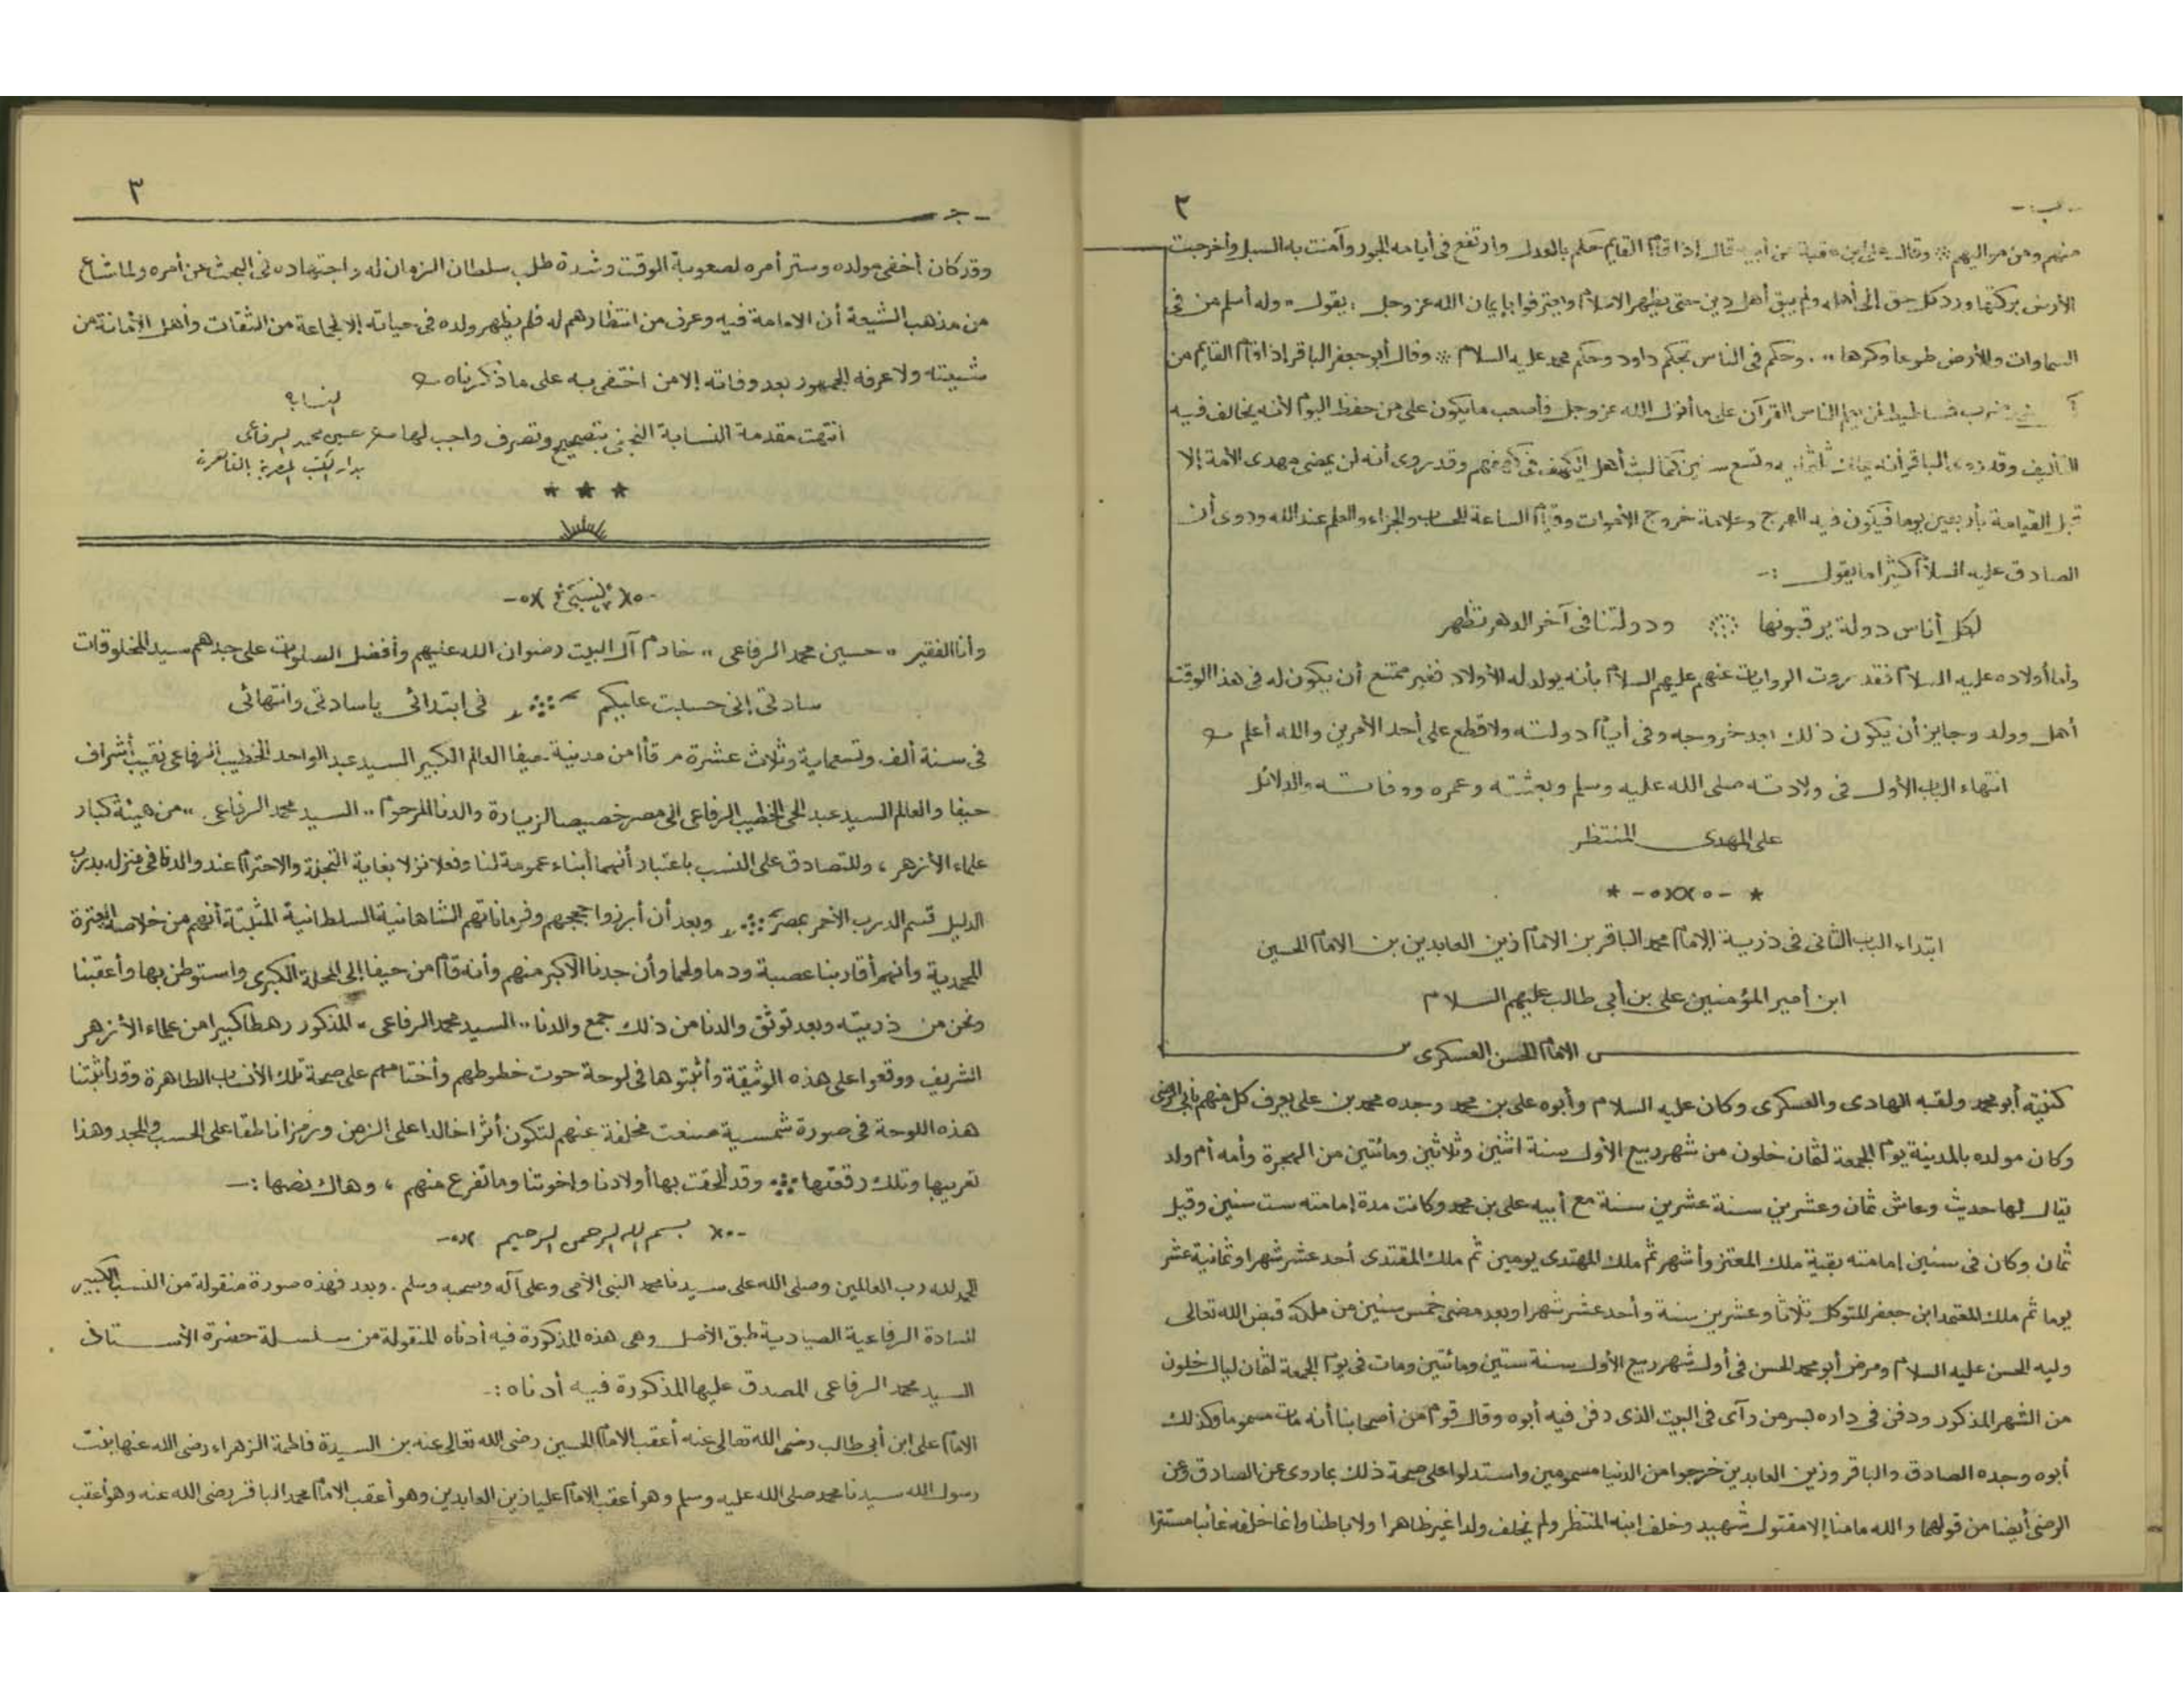 - ب -
٢
منهم ومن مواليهم ∴ وقال على ابن عقبة عن أبيه قال إذا قام القايم حكم بالعدل وارتفع فى أيامه الجور وآمنت به السبل وأخرجت
الأرض بركتها ورد كل حق إلى أهله ولم يبق أهل دين حتى يظهر الاسلام واعترفوا بإيمان الله عز وجل : يقول " وله أسلم من فى
السماوات والأرض طوعا وكرها " . وحكم فى الناس بحكم داود وحكم محمد عليه السلام ∴ وقال أبو جعفر الباقر إذا قام القايم من
ضرب فساطيط لمن يعلم الناس القرآن على ما أنزل الله عز وجل فأصعب ما يكون على من حفظ اليوم لأنه يخالف فيه
التأليف وقد روى الباقر أنه وتسع سنين كما لبث أهل الكهف فى كهفهم وقد روى أنه لن يمضى مهدى الأمة إلا
قبل القيامة بأربعين يوما فيكون فيه الهرج وعلامة خروج الأموات وقيام الساعة للحساب والجزاء والعلم عند الله وروى أن
الصادق عليه السلام كثيرا ما يقول :-
لكل أناس دولة يرقبونها ∴ ودولتنا فى آخر الدهر تظهر
وأما أولاده عليه السلام فقد روت الروايات عنهم عليهم السلام بأنه يولد له الأولاد فغير ممتنع أن يكون له فى هذا الوقت
أهل وولد وجايز أن يكون ذلك بعد خروجه وفى أيام دولته ولا قطع على أحد الأمرين والله أعلم
انتهاء الباب الأول فى ولادته صلى الله عليه وسلم وبعثته وعمره ووفاته والدلائل
على المهدى المنتظر
* -٥XX٥- *
ابتداء الباب الثانى فى ذرية الإمام محمد الباقر بن الامام زين العابدين بن الامام الحسين
ابن أمير المؤمنين على بن أبى طالب عليهم السلام
الامام الحسن العسكرى
كنيته أبو محمد ولقبه الهادى والعسكرى وكان عليه السلام وأبوه على بن محمد وجده محمد بن على يعرف كل منهم بابن الرضى
وكان مولده بالمدينة يوم الجمعة لثمان خلون من شهر ربيع الأول سنة اثنين وثلاثين ومائتين من الهجرة وأمه أم ولد
يقال لها حديث وعاش ثمان وعشرين سنة عشرين سنة مع أبيه على بن محمد وكانت مدة إمامته ست سنين وقيل
ثمان وكان فى سنين إمامته بقية ملك المعتز وأشهر ثم ملك المهتدى يومين ثم ملك المقتدى أحد عشر شهرا وثمانية عشر
يوما ثم ملك المعتمد ابن جعفر المتوكل ثلاثا وعشرين سنة وأحد عشر شهرا وبعد مضى خمس سنين من ملكه قبض الله تعالى
وليه الحسن عليه السلام ومرض أبو محمد الحسن فى أول شهر ربيع الأول سنة ستين ومائتين ومات فى يوم الجمعة لثمان ليال خلون
من الشهر المذكور ودفن فى داره بسر من رآى فى البيت الذى دفن فيه أبوه وقال قوم من أصحابنا أنه مات مسموما وكذلك
أبوه وجده الصادق والباقر وزين العابدين خرجوا من الدنيا مسمومين واستدلوا على صحة ذلك بما روى عن الصادق وعن
الرضى أيضا من قولهما والله ما منا إلا مقتول شهيد وخلف ابنه المنتظر ولم يخلف ولدا غير ظاهرا ولا باطنا وإنما خلفه غائبا مستترا
- ج -
٣
وقد كان أخفى مولده وستر أمره لصعوبة الوقت وشدة طلب سلطان الزمان له واجتهاده فى البحث عن أمره ولما شاع
من مذهب الشيعة أن الامامة فيه وعرف من انتظارهم له فلم يظهر ولده فى حياته إلا لجماعة من الثقات وأهل الأمانة من
شيعته ولا عرفه الجمهور بعد وفاته إلا من اختفى به على ما ذكرناه
النسابة
انتهت مقدمة النسابة النجفى بتصحيح وتصرف واجب لها حسين محمد الرفاعى
بدار الكتب المصرية بالقاهرة
* * *
-٥X نسبى X٥-
وأنا الفقير " حسين محمد الرفاعى " خادم آل البيت رضوان الله عنهم وأفضل الصلوات على جدهم سيد المخلوقات
سادتى إنى حسبت عليكم ∴ فى ابتدائى يا سادتى وانتهائى
فى سنة ألف وتسعماية وثلاث عشرة م قاما من مدينة حيفا العالم الكبير السيد عبد الواحد الخطيب الرفاعى نقيب أشراف
حيفا والعالم السيد عبد الحى الخطيب الرفاعى الى مصر خصيصا لزيارة والدنا المرحوم " السيد محمد الرفاعى " من هيئة كبار
علماء الأزهر ، وللتصادق على النسب باعتبار أنهما أبناء عمومة لنا وفعلا نزلا بغاية التجلة والاحترام عند والدنا فى منزله بدرب
الدليل قسم الدرب الأحمر بمصر ∴ وبعد أن أبرزوا حججهم وفرماناتهم الشاهانية السلطانية المثبتة أنهم من خلاصة العترة
المحمدية وأنهم أقاربنا عصبية ودما ولحما وأن جدنا الأكبر منهم وأنه قام من حيفا إلى المحلة الكبرى واستوطن بها وأعقبنا
ونحن من ذريته وبعد توثق والدنا من ذلك جمع والدنا " السيد محمد الرفاعى " المذكور رهطا كبيرا من علماء الأزهر
الشريف ووقعوا على هذه الوثيقة وأثبتوها فى لوحة حوت خطوطهم وأختامهم على صحة تلك الأنساب الطاهرة وقد أثبتنا
هذه اللوحة فى صورة شمسية صنعت مخلفة عنهم لتكون أثرا خالدا على الزمن ورمزا ناطقا على الحسب والمجد وهذا
تعريبها وتلك رقعتها ∴ وقد ألحقت بها أولادنا وإخوتنا وما تفرع منهم ، وهاك نصها :-
-٥X بسم الله الرحمن الرحيم X٥-
الحمد لله رب العالمين وصلى الله على سيدنا محمد النبى الأمى وعلى آله وصحبه وسلم . وبعد فهذه صورة منقولة من النسب الكبير
للسادة الرفاعية الصيادية طبق الأصل وهى هذه المذكورة فيه أدناه المنقولة من سلسلة حضرة الأستاذ
السيد محمد الرفاعى المصدق عليها المذكورة فيه أدناه :-
الامام على ابن أبى طالب رضى الله تعالى عنه أعقب الامام الحسين رضى الله تعالى عنه بن السيدة فاطمة الزهراء رضى الله عنها بنت
رسول الله سيدنا محمد صلى الله عليه وسلم وهو أعقب الامام عليا زين العابدين وهو أعقب الامام محمد الباقر رضى الله عنه وهو أعقب